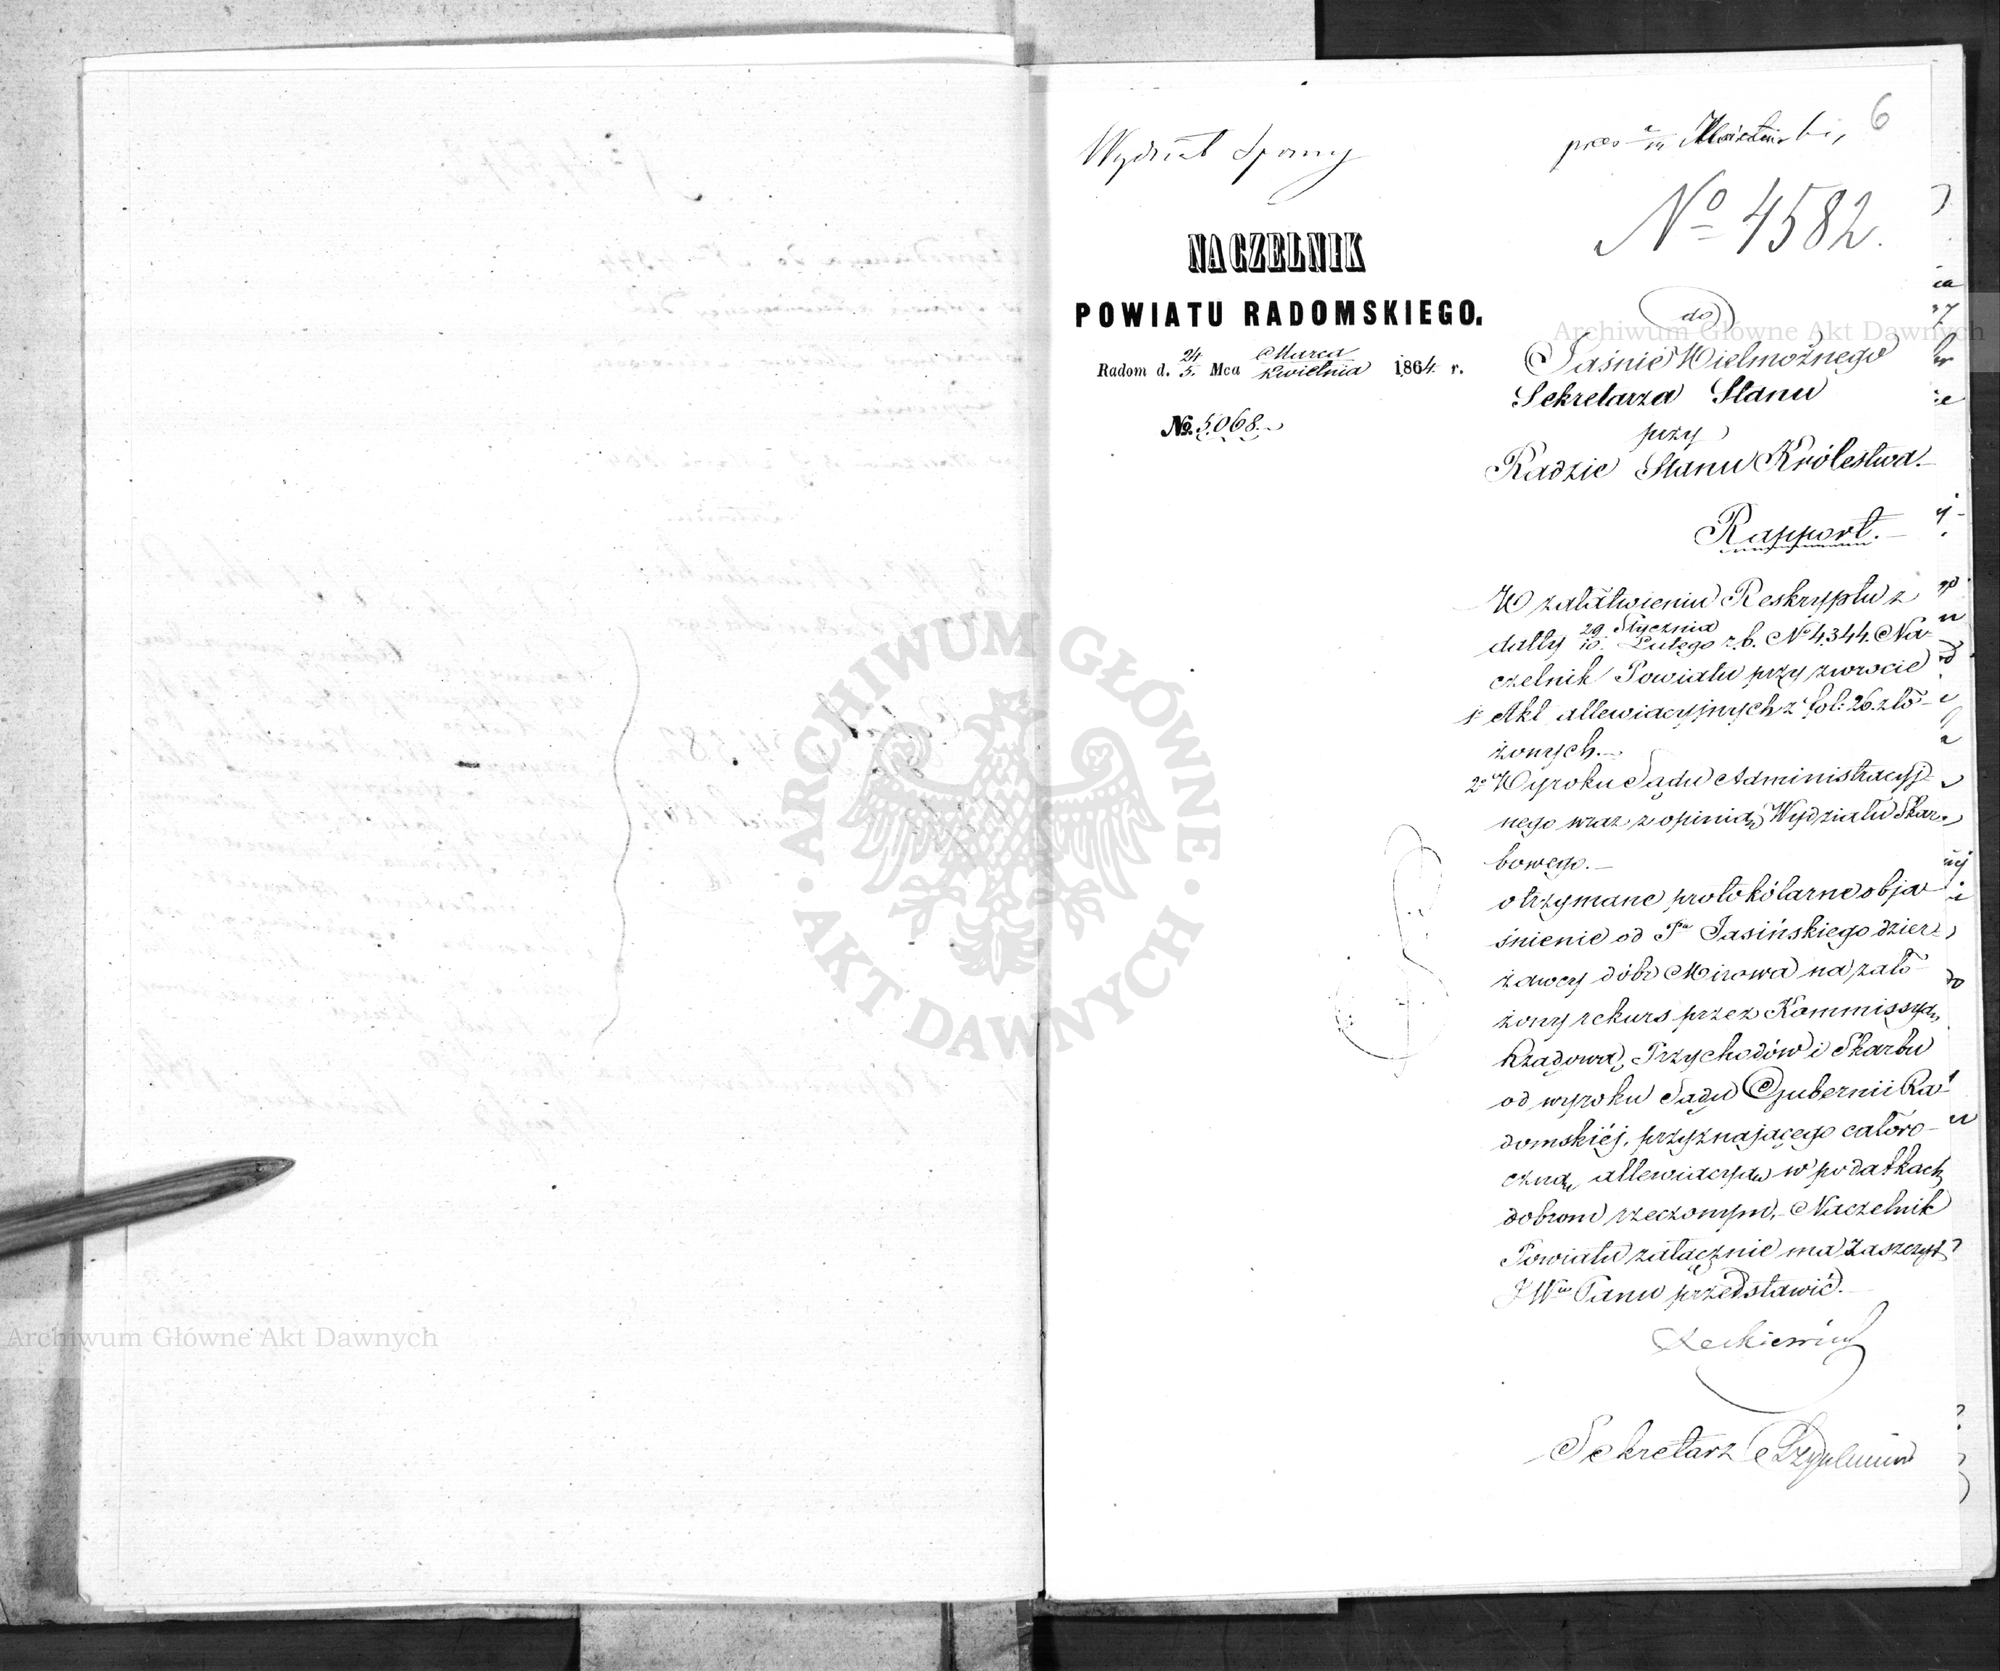 6
Wydział Sporny
No 4582.
NACZELNIK
POWIATU RADOMSKIEGO.
Radom d. 24/5. Mca Marca/Kwietnia 1864 r.
No. 5068.
do
Jaśnie Wielmożnego
Sekretarza Stanu
przy
Radzie Stanu Królestwa.
Rapport.
W załatwieniu Reskryptu z
datty 29 Stycznia/10. Lutego r. b. No 4344. Na-
czelnik Powiatu przy zwrocie
1o Akt allewiacyjnych z fol: 26. zło-
żonych.
2o Wyroku Sądu Administracyj-
nego wraz z opinią Wydziału Skar-
bowego.
otrzymane protokólarne obja-
śnienie od Pa Jasińskiego dzier-
żawcy dóbr Mirowa na zało-
żony rekurs przez Kommissyą
Rządową Przychodów i Skarbu
od wyroku Sądu Gubernii Ra-
domskiéj, przyznającego cało ro-
czną allewiacyą w podatkach
dobrom rzeczonym, Naczelnik
Powiatu załącznie ma zaszczyt
JWu Panu przedstawić.
Sekretarz
Archiwum Główne Akt Dawnych
ARCHIWUM GŁÓWNE AKT DAWNYCH
Archiwum Główne Akt Dawnych